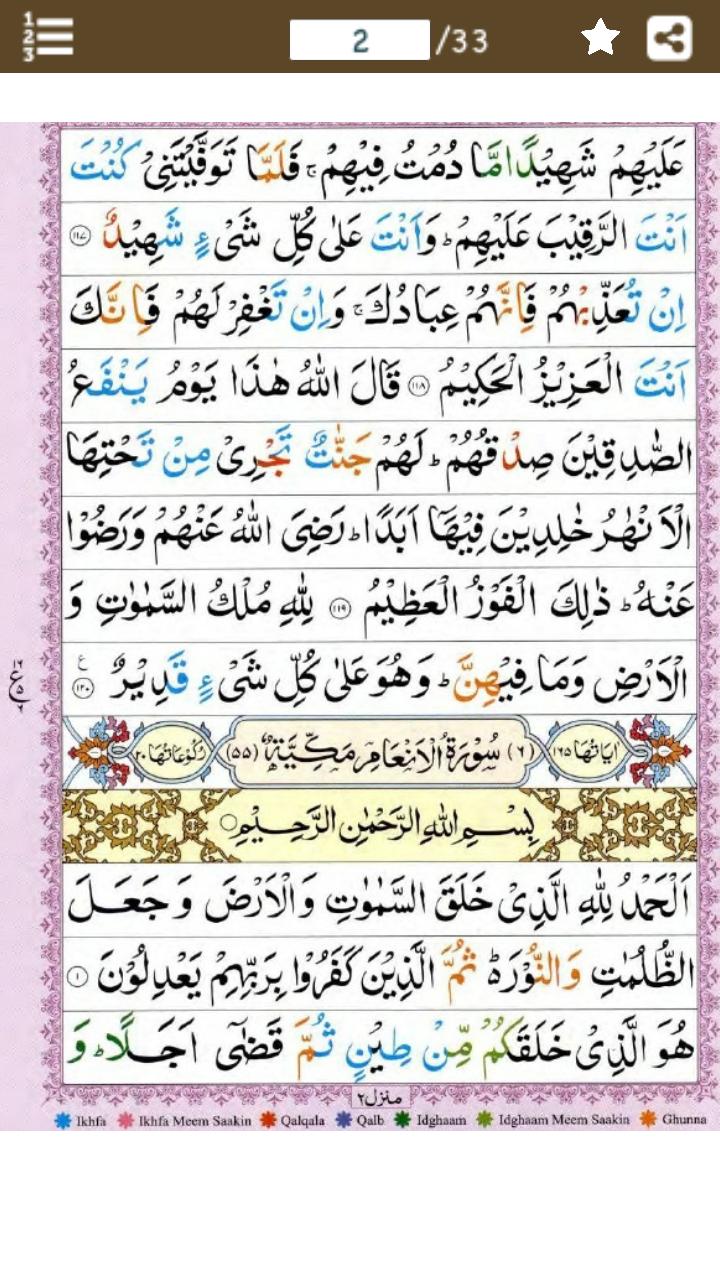 1
2
3
2 /33
عَلَيْهِمْ شَهِيْدًا مَّا دُمْتُ فِيْهِمْ ۚ فَلَمَّا تَوَفَّيْتَنِيْ كُنْتَ
اَنْتَ الرَّقِيْبَ عَلَيْهِمْ ؕ وَاَنْتَ عَلٰى كُلِّ شَيْءٍ شَهِيْدٌ ۝۱۱۷
اِنْ تُعَذِّبْهُمْ فَاِنَّهُمْ عِبَادُكَ ۚ وَاِنْ تَغْفِرْ لَهُمْ فَاِنَّكَ
اَنْتَ الْعَزِيْزُ الْحَكِيْمُ ۝۱۱۸ قَالَ اللّٰهُ هٰذَا يَوْمُ يَنْفَعُ
الصّٰدِقِيْنَ صِدْقُهُمْ ؕ لَهُمْ جَنّٰتٌ تَجْرِيْ مِنْ تَحْتِهَا
الْاَنْهٰرُ خٰلِدِيْنَ فِيْهَاۤ اَبَدًا ؕ رَضِيَ اللّٰهُ عَنْهُمْ وَرَضُوْا
عَنْهُ ؕ ذٰلِكَ الْفَوْزُ الْعَظِيْمُ ۝۱۱۹ لِلّٰهِ مُلْكُ السَّمٰوٰتِ وَ
الْاَرْضِ وَمَا فِيْهِنَّ ؕ وَهُوَ عَلٰى كُلِّ شَيْءٍ قَدِيْرٌ ۝۱۲۰ ع
۱۶ ع ۵
اٰيَاتُهَا ۱۶۵ (۶) سُوْرَةُ الْاَنْعَامِ مَكِّيَّةٌ (۵۵) رُكُوْعَاتُهَا ۲۰
بِسْمِ اللّٰهِ الرَّحْمٰنِ الرَّحِيْمِ ۝
اَلْحَمْدُ لِلّٰهِ الَّذِيْ خَلَقَ السَّمٰوٰتِ وَالْاَرْضَ وَ جَعَلَ
الظُّلُمٰتِ وَالنُّوْرَ ؕ۬ ثُمَّ الَّذِيْنَ كَفَرُوْا بِرَبِّهِمْ يَعْدِلُوْنَ ۝۱
هُوَ الَّذِيْ خَلَقَكُمْ مِّنْ طِيْنٍ ثُمَّ قَضٰۤى اَجَلًا ؕ وَ
منزل۲
Ikhfa Ikhfa Meem Saakin Qalqala Qalb Idghaam Idghaam Meem Saakin Ghunna